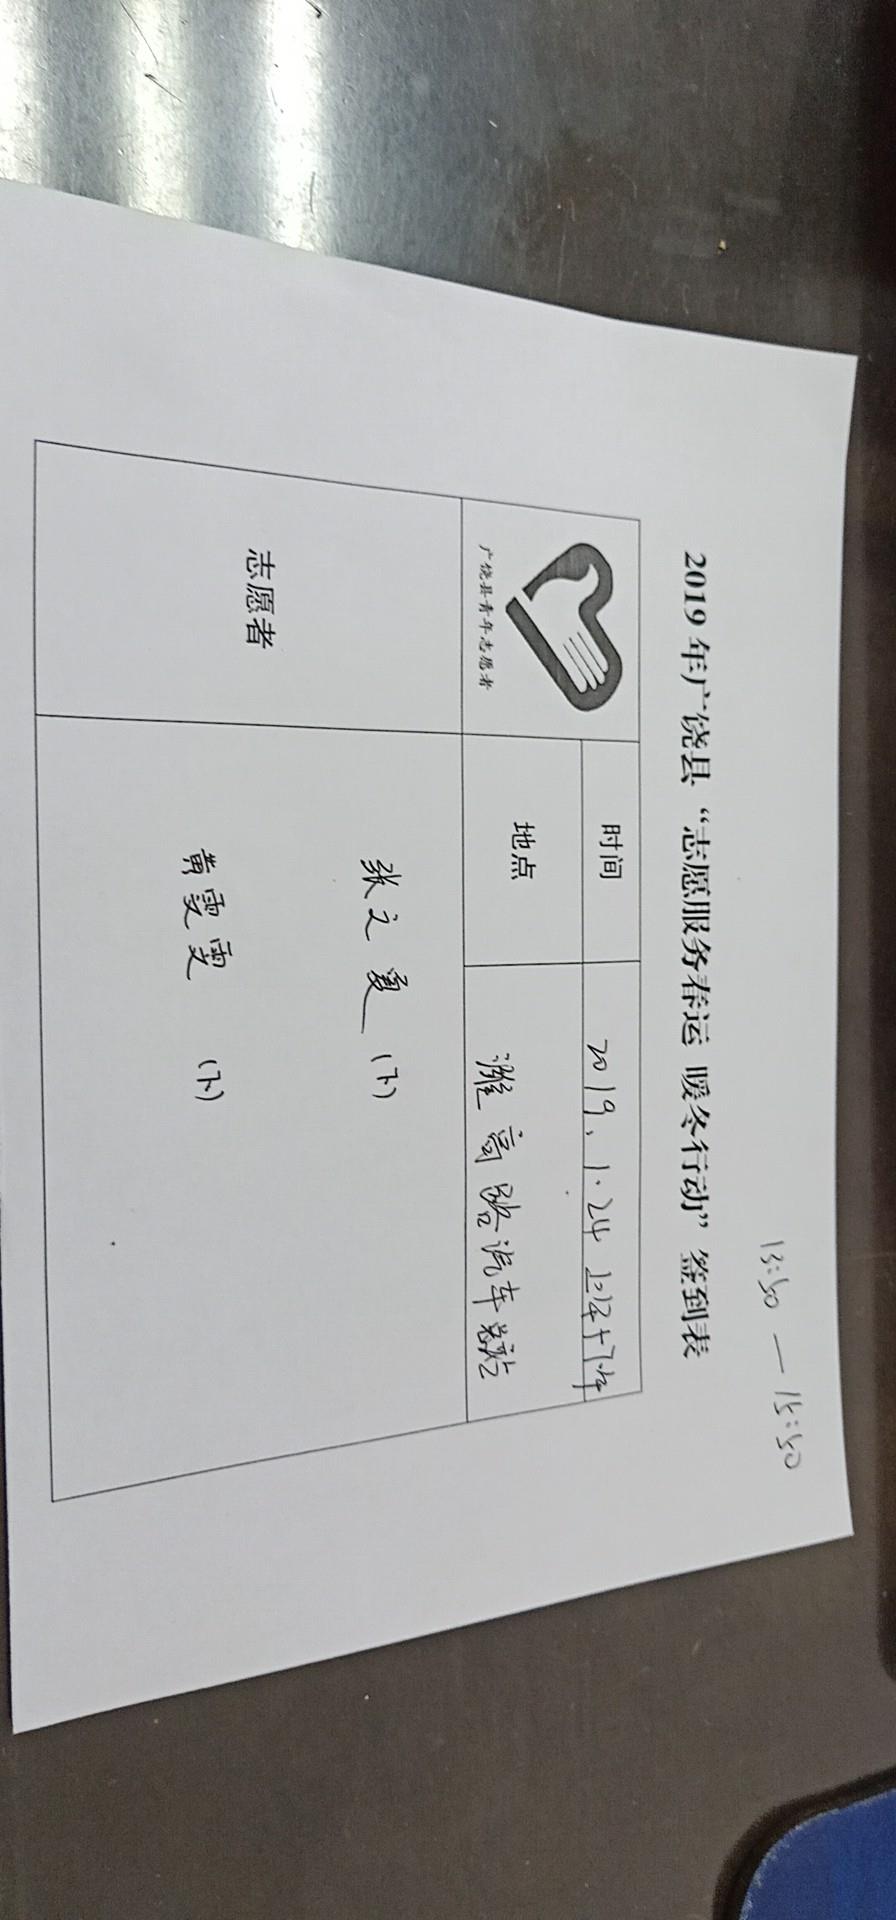 13:50 — 15:50
2019 年广饶县“志愿服务春运 暖冬行动”签到表
广饶县青年志愿者
时间
2019、1.24 上午+下午
地点
潍高路汽车总站
志愿者
张文(下)
黄雯雯 (下)